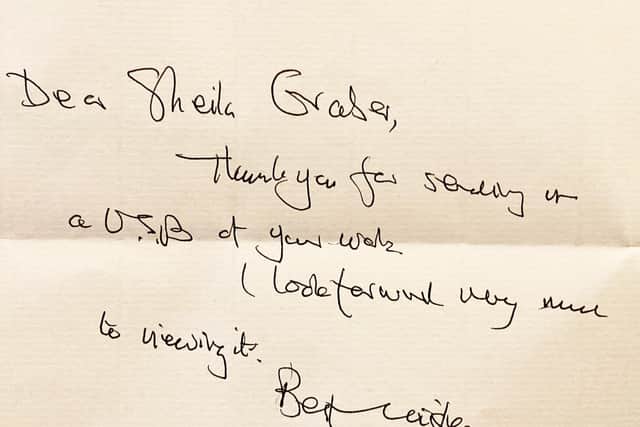 Dear Sheila Graber,
Thank you for sending in
a U.S.B of your work
I look forward very much
to viewing it.
Best wishes